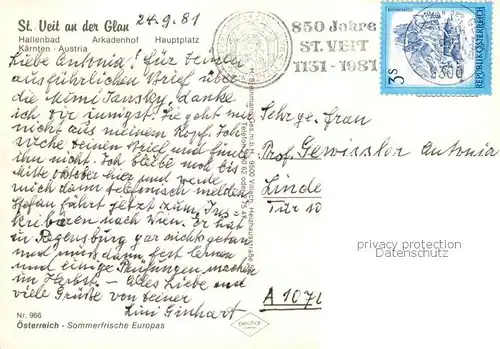 St. Veit an der Glan
24.9.81
Hallenbad Arkadenhof Hauptplatz
Kärnten - Austria
850 Jahre
ST. VEIT
1131-1981
3s
REPUBLIK ÖSTERREICH
9300
Liebe Antonia! Für Deinen
ausführlichen Brief über
die Mimi Jansky, danke
ich Dir innigst. Sie geht mir
nicht aus meinem Kopf. Ich
suche Deinen Brief und finde
ihn nicht. Ich bleibe noch bis
Mitte Oktober hier und werde
mich dann telefonisch melden
Stefan fährt jetzt zum Ins-
kribieren nach Wien. Er hat
in Regensburg gar nichts getan
und muss dann fest lernen
und einige Prüfungen machen
im Herbst - Alles Liebe und
viele Grüße von Deiner
Lini Ginhart
Sehrge. Frau
Prof. Gewissler Antonia
Linde
Tür 10
A 107
privacy protection
Datenschutz
Nr. 966
Österreich - Sommerfrische Europas